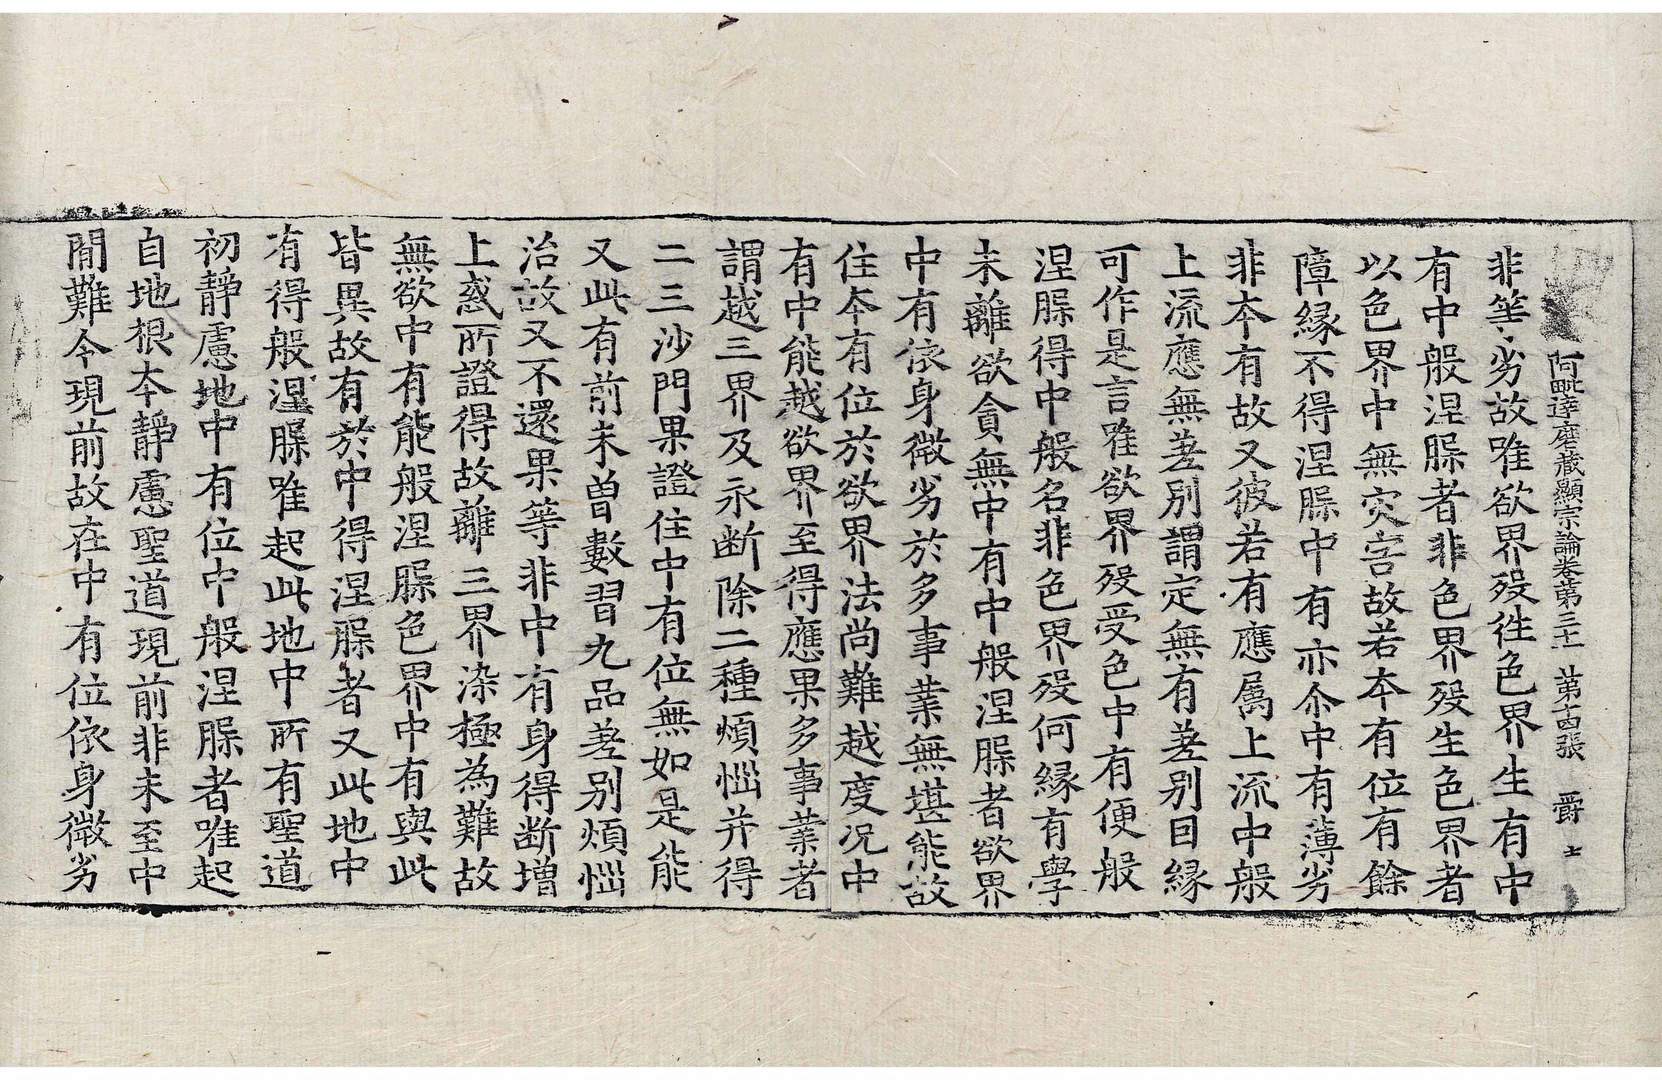 阿毗達磨藏顯宗論卷第三十一 第十四張 爵 士
非等劣故唯欲界歿徃色界生有中
有中般涅䐉者非色界歿生色界者
以色界中無灾害故若夲有位有餘
障緣不得涅䐉中有亦尒中有薄劣
非夲有故又彼若有應属上流中般
上流應無差別謂定無有差別因緣
可作是言唯欲界歿受色中有便般
涅䐉得中般名非色界歿何緣有學
未離欲貪無中有中般涅䐉者欲界
中有依身微劣於多事業無堪能故
住夲有位於欲界法尚難越度況中
有中能越欲界至得應果多事業者
謂越三界及永断除二種煩惱并得
二三沙門果證住中有位無如是能
又此有前未曾數習九品差別煩惱
治故又不還果等非中有身得断增
上惑所證得故離三界染極為難故
無欲中有能般涅䐉色界中有與此
皆異故有於中得涅䐉者又此地中
有得般涅䐉唯起此地中所有聖道
初靜慮地中有位中般涅䐉者唯起
自地根夲靜慮聖道現前非未至中
閒難令現前故在中有位依身微劣